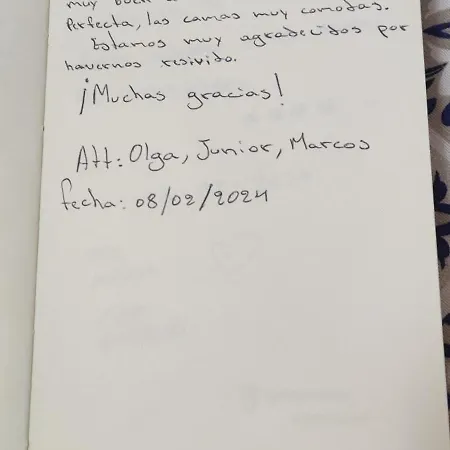 muy
Perfecta, las camas muy comodas.
Estamos muy agradecidos por
havernos resivido.
¡Muchas gracias!
Att: Olga, Junior, Marcos
fecha: 08/02/2024